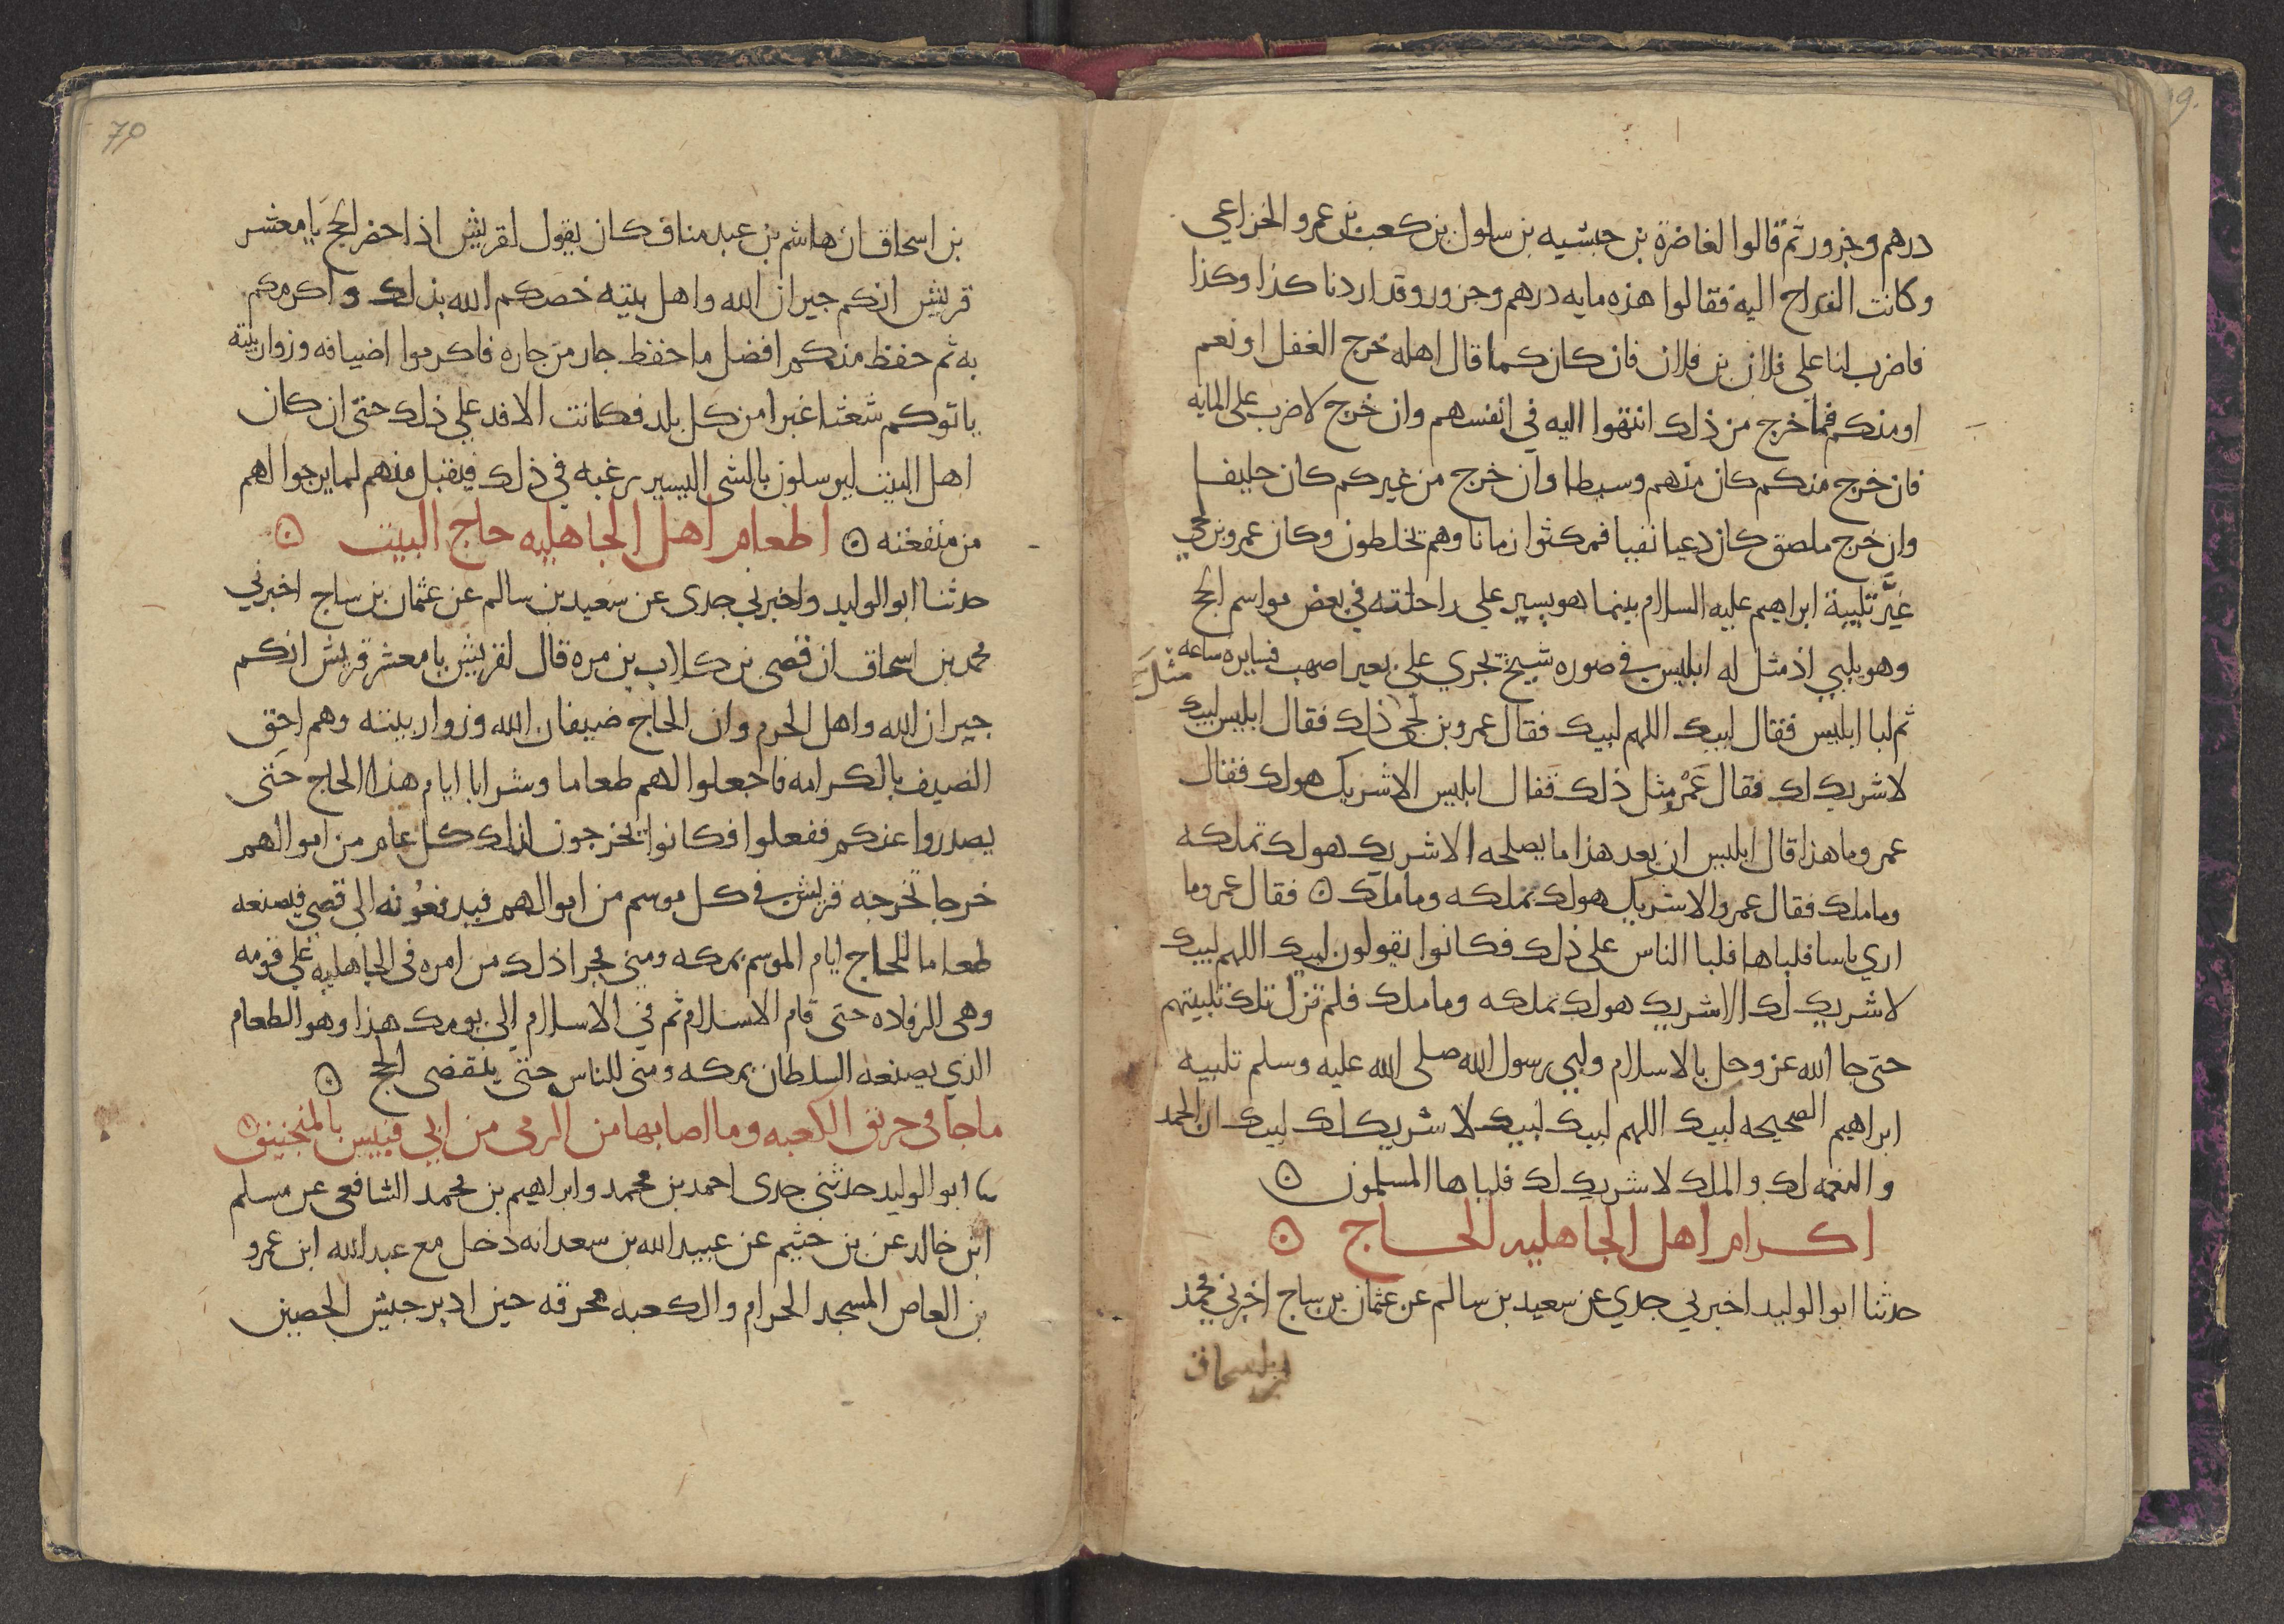 درهم وجزور ثم قالوا لغاضرة بن حبشيه بن سلول بن كعب بن عمرو الخزاعي
وكانت القداح اليه فقالوا هذه مايه درهم وجزور وقد اردنا كذا وكذا
فاضرب لنا على فلان بن فلان فان كان كما قال اهله خرج الغفل او نعم
او منكم فما خرج من ذلك انتهوا اليه في انفسهم وان خرج لا ضرب على المايه
فان خرج منكم كان منهم وسيطا وان خرج من غيركم كان حليفا
وان خرج ملصق كان دعيا نفيا فمكثوا زمانا وهم يخلطون وكان عمرو بن لحي
غيَّر تلبية ابراهيم عليه السلام بينما هو يسير على راحلته في بعض مواسم الحج
وهو يلبي اذ مثل له ابليس في صوره شيخ نجدي على بعير اصهب فسايره ساعه
ثم لبا ابليس فقال لبيك اللهم لبيك فقال عمرو بن لحى مثل ذلك فقال ابليس لبيك
لا شريك لك فقال عَمْرو مثل ذلك فقال ابليس الا شريك هو لك فقال
عمرو ما هذا قال ابليس ان بعد هذا ما يصلحه الا شريك هو لك تملكه
وما ملك فقال عمرو الا شريك هو لك تملكه وما ملك ۞ فقال عمرو ما
ارى باسا فلباها فلبا الناس على ذلك فكانوا يقولون لبيك اللهم لبيك
لا شريك لك الا شريك هو لك تملكه وما ملك فلم تزل تلك تلبيتهم
حتى جا الله عز وجل بالاسلام ولبى رسول الله صلى الله عليه وسلم تلبيه
ابراهيم الصحيحه لبيك اللهم لبيك لبيك لا شريك لك لبيك ان الحمد
والنعمه لك والملك لا شريك لك فلباها المسلمون ۞
اكرام اهل الجاهليه الحاج ۞
حدثنا ابو الوليد اخبرني جدي عن سعيد بن سالم عن عثمان بن ساج اخبرني محمد
بن اسحاق
70
بن اسحاق ان هاشم بن عبد مناف كان يقول لقريش اذا حضر الحج يا معشر
قريش انكم جيران الله واهل بيته خصكم الله بذلك واكرمكم
به ثم حفظ منكم افضل ما حفظ جار من جاره فاكرموا اضيافه وزوار بيته
ياتوكم شعثا غبرا من كل بلد فكانت الافد على ذلك حتى ان كان
اهل البيت ليرسلون بالشى اليسير رغبه في ذلك فيقبل منهم لما يرجوا لهم
من منفعته ۞ اطعام اهل الجاهليه حاج البيت ۞
حدثنا ابو الوليد واخبرني جدى عن سعيد بن سالم عن عثمان بن ساج اخبرني
محمد بن اسحاق ان قصى بن كلاب بن مره قال لقريش يا معشر قريش انكم
جيران الله واهل الحرم وان الحاج ضيفان الله وزوار بيته وهم احق
الضيف بالكرامه فاجعلوا لهم طعاما وشرابا ايام هذا الحاج حتى
يصدروا عنكم ففعلوا فكانوا يخرجون لذلك كل عام من اموالهم
خرجا تخرجه قريش في كل موسم من اموالهم فيدفعونه الى قصي فيصنعه
طعاما للحاج ايام الموسم بمكه ومنى فجرا ذلك من امره في الجاهليه على قومه
وهى الرفاده حتى قام الاسلام ثم في الاسلام الى يومك هذا وهو الطعام
الذي يصنعه السلطان بمكه ومنى للناس حتى ينقضى الحج ۞
ما جا في حريق الكعبه وما اصابها من الرمى من ابي قبيس بالمنجنيق ۞
ابو الوليد حدثني جدى احمد بن محمد وابراهيم بن محمد الشافعى عن مسلم
ابن خالد عن بن خثيم عن عبيد الله بن سعد انه دخل مع عبد الله ابن عمرو
بن العاص المسجد الحرام والكعبه محرقه حين ادبر جيش الحصين